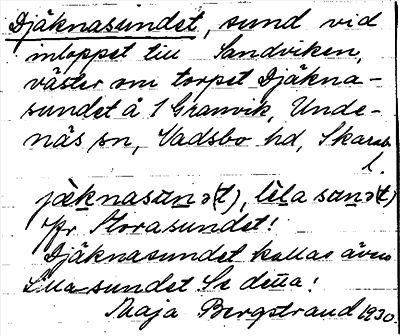 Djäknasundet, sund vid
inloppet till Sandviken,
väster om torpet Djäkna-
sundet å 1 Granvik, Unde-
näs sn, Vadsbo hd, Skarab.
l.
jɛ̀knasɯnə(t), lìla sɯnə(t)
Jfr Stora sundet!
Djäknasundet kallas även
Lilla sundet Se detta!
Maja Bergstrand 1930.